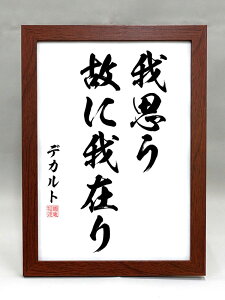 我思う
故に我在り
デカルト